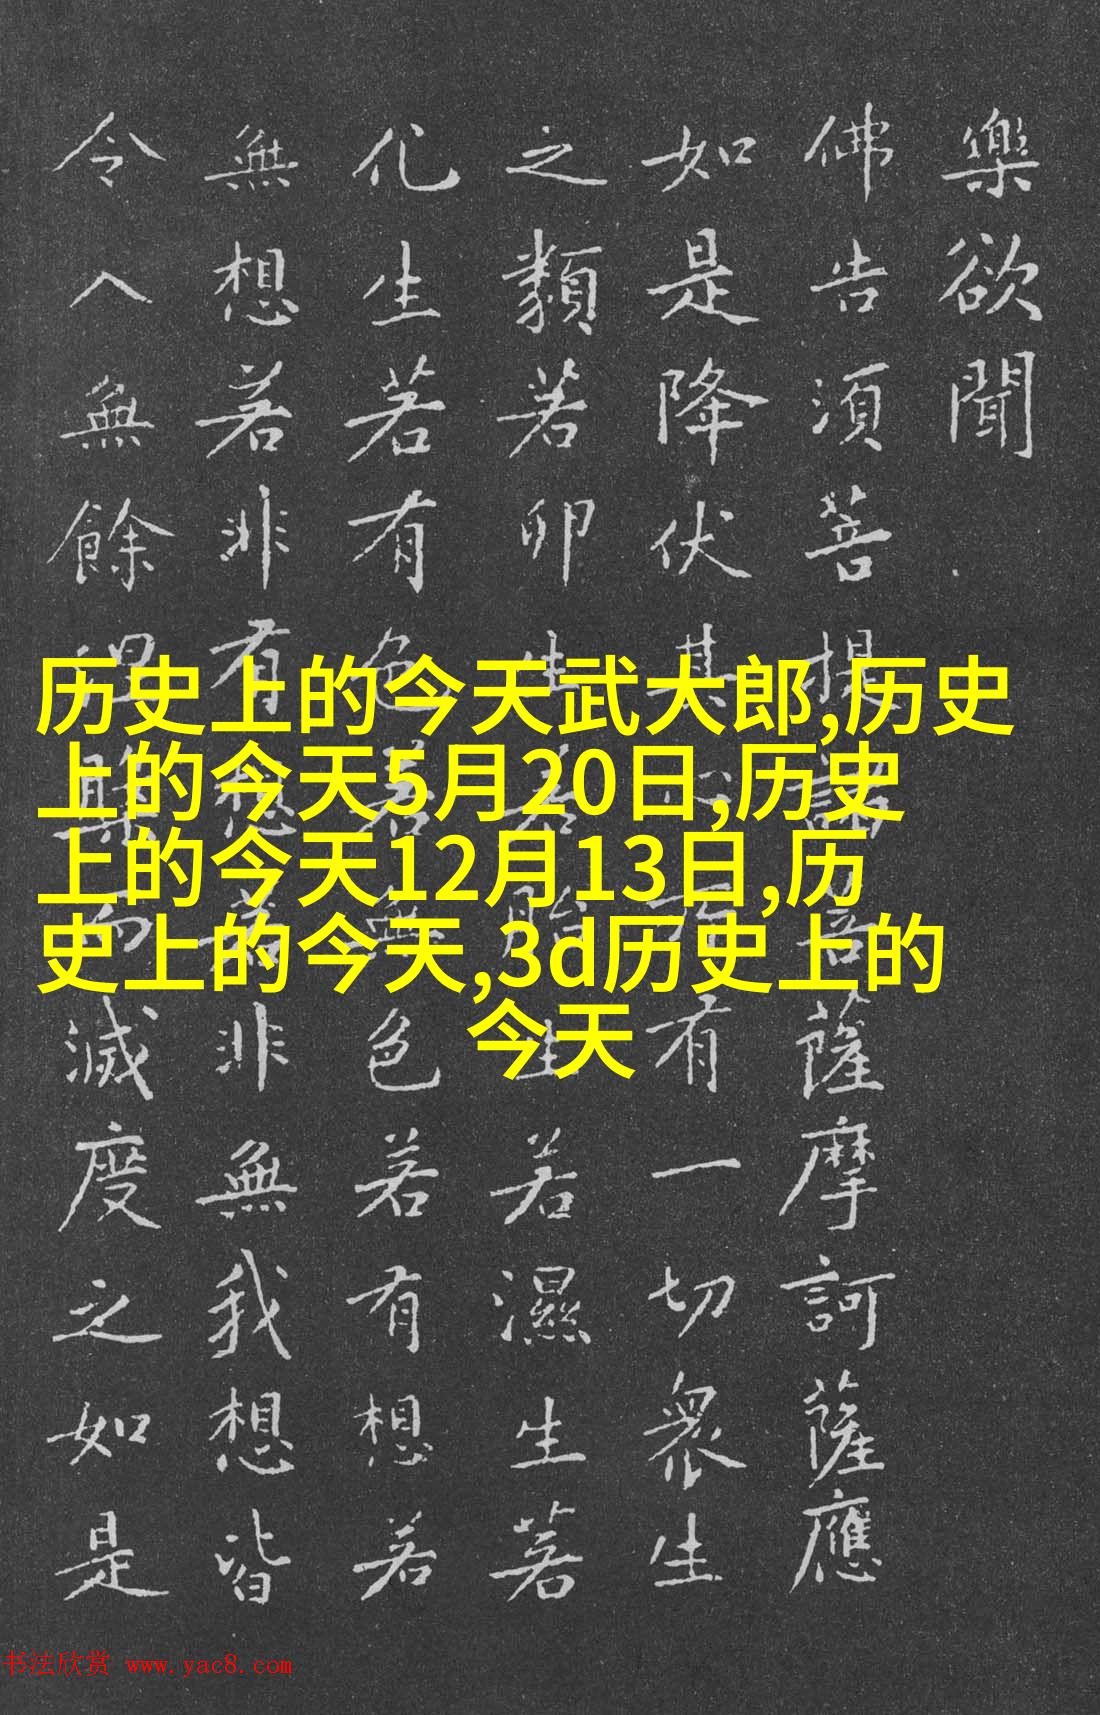 樂欲聞
佛告須菩提諸菩薩摩訶薩應
如是降伏其心所有一切衆生
之類若卵生若胎生若濕生若
化生若有色若無色若有想若
無想若非有想若非無我想皆
令入無餘涅槃而滅度之如是
历史上的今天武大郎,历史
上的今天5月20日,历史
上的今天12月13日,历
史上的今天,3d历史上的
今天
书法欣赏 www.yac8.com